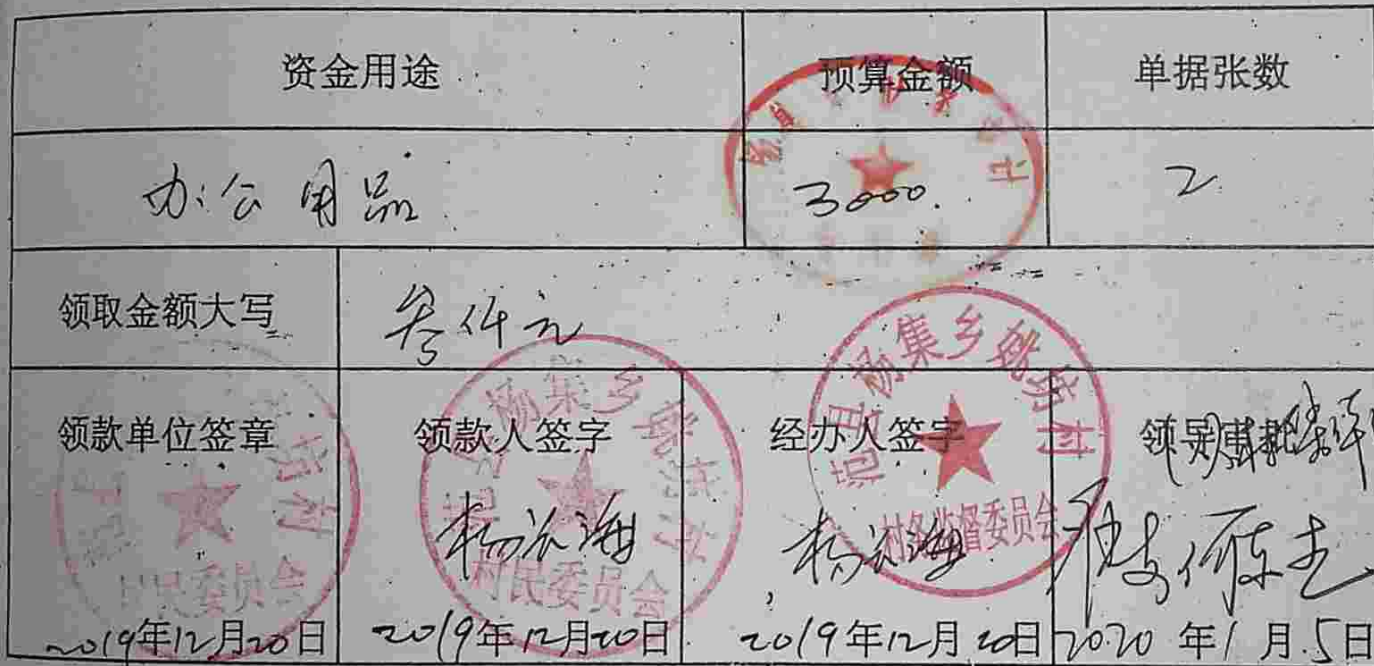 资金用途 预算金额 单据张数
办公用品 3000. 2
领取金额大写 叁仟元
领款单位签章 领款人签字 经办人签字 领导审批
杨集乡姚坊村
村民委员会
范县杨集乡姚坊村
村务监督委员会
村民委员会
2019年12月20日 2019年12月20日 2019年12月20日 2020年1月5日